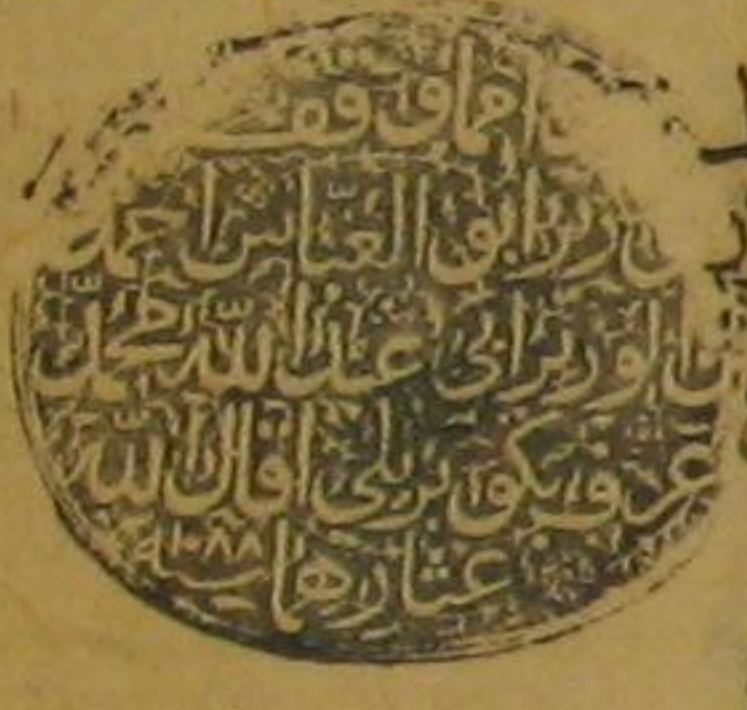 هذا مما وقف
الوزير ابو العباس احمد
بن الوزير ابي عبد الله محمد
عرف بكوپريلي اقال الله
عثارهما سنة ١٠٨٨